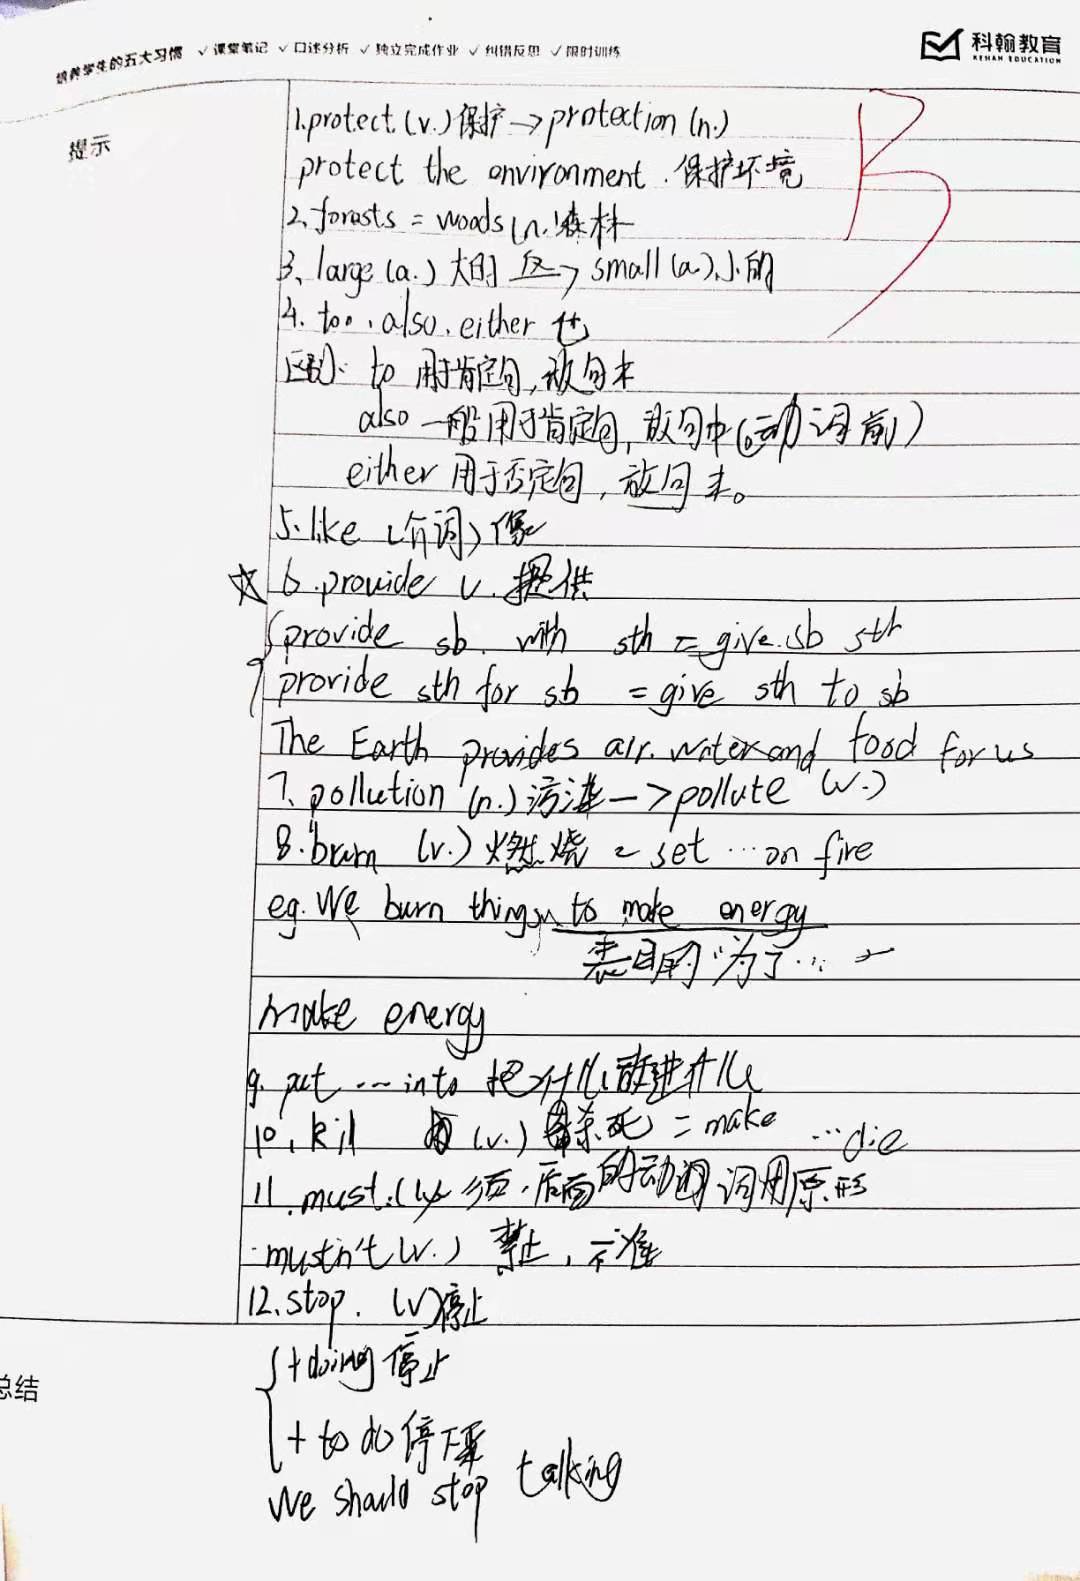 培养学生的五大习惯 ✓课堂笔记 ✓口述分析 ✓独立完成作业 ✓纠错反思 ✓限时训练
科翰教育
KEHAN EDUCATION
提示
B
1.protect (v.)保护→protection (n.)
protect the environment. 保护环境
2.forests = woods (n.)森林
3、large (a.) 大的 反→ small (a.)小的
4. too、also、either 也
区别: to 用于肯定句,放句末
also 一般用于肯定句,放句中(动词前)
either 用于否定句,放句末。
5.like (介词) 像
☆6.provide v. 提供
{provide sb. with sth = give sb sth
provide sth for sb = give sth to sb
The Earth provides air. water and food for us
7、pollution (n.) 污染—>pollute (v.)
8.burn (v.) 燃烧 = set …on fire
eg. We burn things to make energy
表目的 "为了…
make energy
9. put …into 把什么放进什么
10、kill (v.) 杀死 = make …die
11.must.(v) 须,后面的动词词用原形
mustn't (v.) 禁止,不准
12.stop. (v)停止
总结
{+doing 停止
+ to do 停下来
We should stop talking